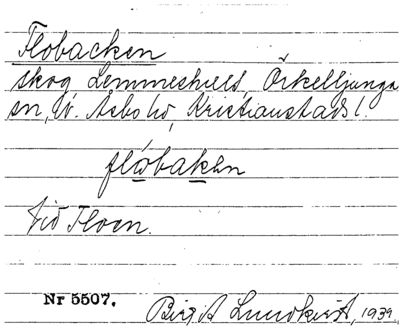 Flobacken
skog Lemmeshult, Örkelljunga
sn, V. Asbo hd, Kristianstads l.
flòbaken
Vid Floen.
Nr 5507.
Birgit Lundkvist, 1939.